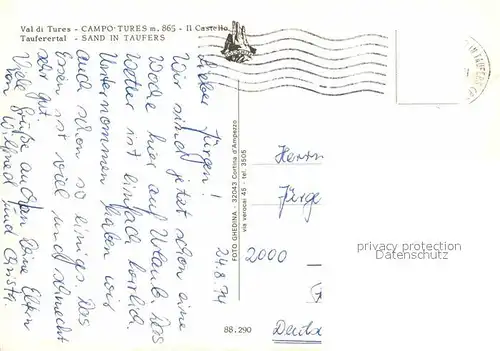 Val di Tures - CAMPO TURES m. 865 - Il Castello
Tauferertal - SAND IN TAUFERS
24.8.74
Lieber Jürgen!
Wir sind jetzt schon eine
Woche hier auf Urlaub. Das
Wetter ist einfach herrlich.
Unternommen haben wir
auch schon so einiges. Das
Essen ist viel und schmeckt
sehr gut.
Viele Grüße auch an Deine Eltern
von Wilfried und Christa.
FOTO GHEDINA - 32043 Cortina d'Ampezzo
via verocai 45 - tel. 3505
88.290
IN TAUFERS
Herrn
Jürge
2000
privacy protection
Datenschutz